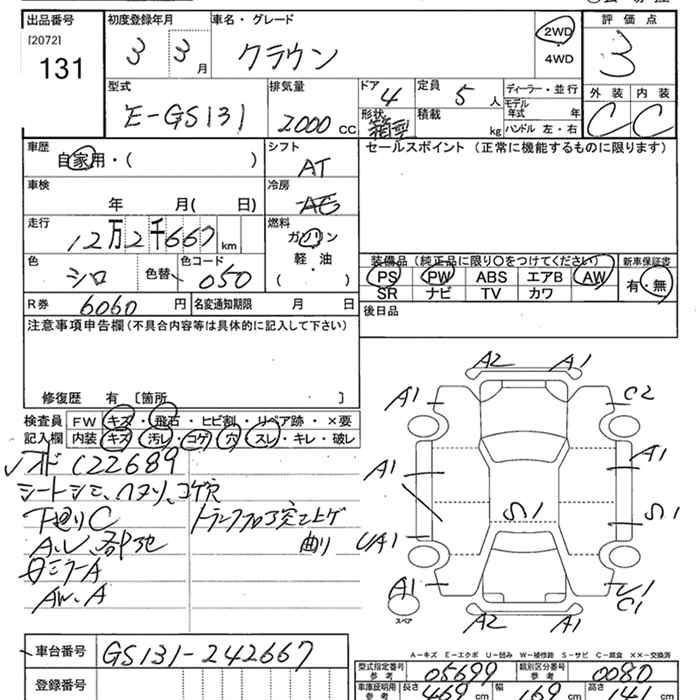 出品番号
[2072]
131
初度登録年月
3 3月
車名・グレード
クラウン
2WD
・
4WD
評価点
3
型式
E-GS131
排気量
2000 CC
ドア
4
形状
箱型
定員
5 人
積載
kg
ディーラー・並行
モデル年式 年
ハンドル 左・右
外装 内装
C C
車歴
自家用・( )
シフト
AT
セールスポイント (正常に機能するものに限ります)
車検
年 月( 日)
冷房
AC
走行
12万2千667km
燃料
ガソリン
軽・油
( ・ )
色
シロ
色替
色コード
050
装備品(純正品に限り○をつけてください)
PS PW ABS エアB AW
SR ナビ TV カワ
新車保証書
有・無
R券
6060円
名変通知期限 月 日
後日品
注意事項申告欄(不具合内容等は具体的に記入して下さい)
修復歴 有 〔箇所 〕
検査員
記入欄
FW キズ・飛石・ヒビ割・リペア跡・×要
内装 キズ・汚レ・コゲ・穴・スレ・キレ・破レ
C22689
シートシミ、ヘタリ、コゲ穴
下廻リC
トランクフロア突上ゲ
曲リ
AW.A
A2 A1
A1 C2
A1 A1
S1 S1
UA1
A1 C1
スペア
A2 A1
A-キズ E-エクボ U-凹み W-補修跡 S-サビ C-腐食 ××-交換済
車台番号
GS131-242667
登録番号
型式指定番号
参考
05699
類別区分番号
参考
0080
車庫証明用
参考
長さ 469 cm
幅 169 cm
高さ 141 cm